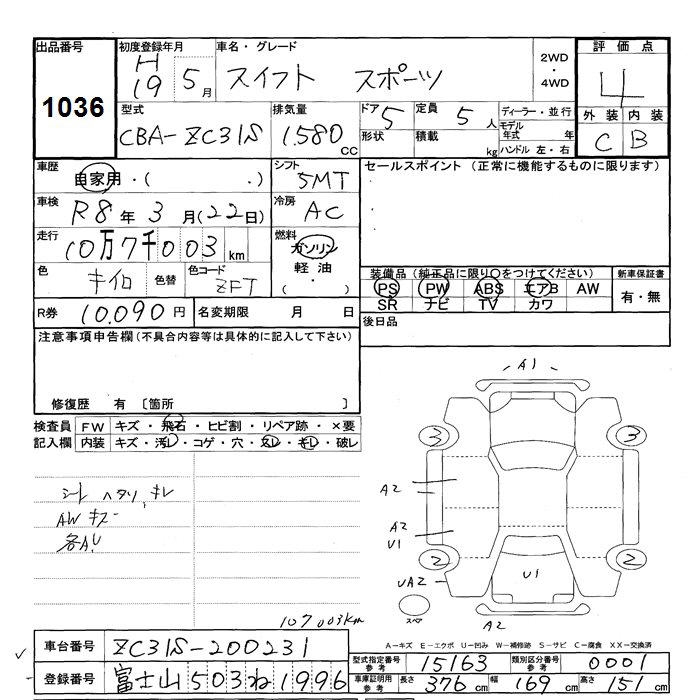 出品番号 初度登録年月 車名・グレード 2WD・4WD 評価点
1036 H19 5月 スイフト スポーツ 4
型式 排気量 ドア 5 定員 5人 ディーラー・並行 外装 内装
CBA-ZC31S 1.580cc 形状 積載 kg モデル年式 年 ハンドル 左・右 C B
車歴 自家用・( .) シフト 5MT セールスポイント (正常に機能するものに限ります)
車検 R8年 3月(22日) 冷房 AC
走行 10万7千003km 燃料 ガソリン 軽油 ( ・ )
色 キイロ 色替 色コード ZFT
装備品 (純正品に限り○をつけてください) 新車保証書
PS PW ABS エアB AW 有・無
SR ナビ TV カワ
R券 10.090円 名変期限 月 日 後日品
注意事項申告欄 (不具合内容等は具体的に記入して下さい)
修復歴 有 〔箇所 〕
検査員 FW キズ・飛石・ヒビ割・リペア跡・×要
記入欄 内装 キズ・汚レ・コゲ・穴・スレ・キレ・破レ
シート ヘタリ、キレ
AW キズ
各AU
107003km
A1
3 3
A2
A2
U1
2 2
UA2 U1
スペア A2
A-キズ E-エクボ U-凹み W-補修跡 S-サビ C-腐食 XX-交換済
車台番号 ZC31S-200231
登録番号 富士山 503 ね 1996
型式指定番号 参考 15163 類別区分番号 参考 0001
車庫証明用 参考 長さ 376cm 幅 169cm 高さ 151cm